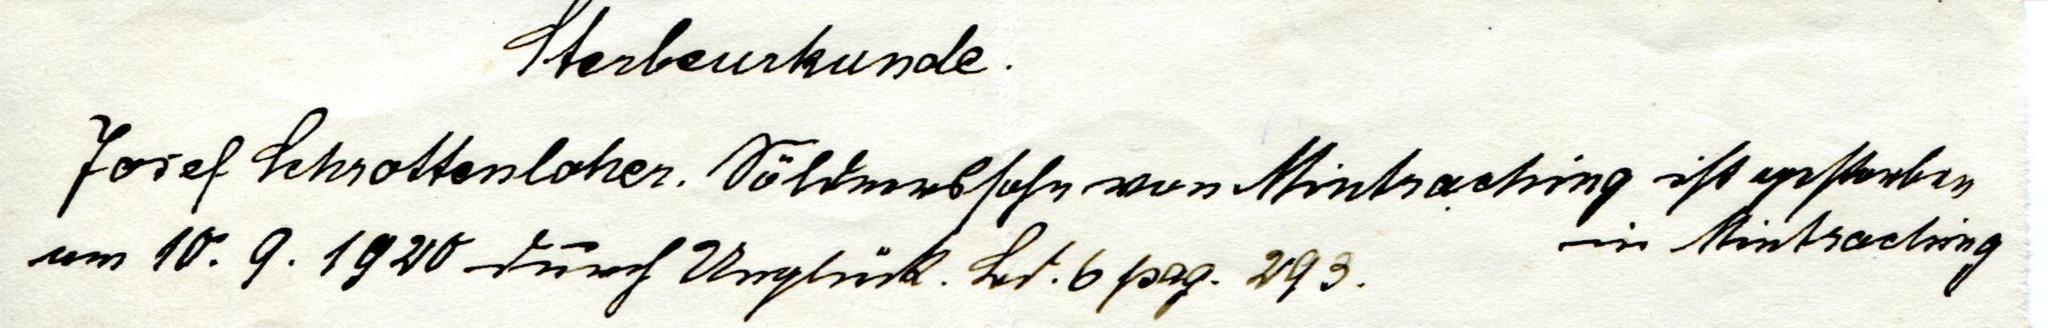 Sterbeurkunde.
Josef Schrottenloher. Söldnerssohn von Mintraching ist gestorben
in Mintraching
am 10. 9. 1920 durch Unglück. Bd. 6 pag. 293.